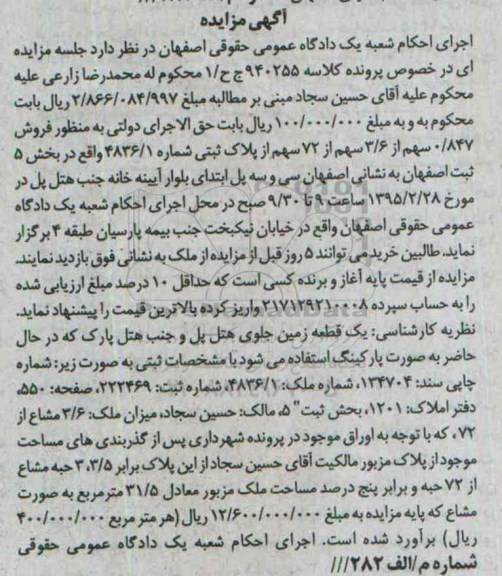 آگهی مزایده
اجرای احکام شعبه یک دادگاه عمومی حقوقی اصفهان در نظر دارد جلسه مزایده
ای در خصوص پرونده کلاسه ۹۴۰۲۵۵ ج ح/۱ محکوم له محمدرضا زارعی علیه
محکوم علیه آقای حسین سجاد مبنی بر مطالبه مبلغ ۲/۸۶۶/۰۸۴/۹۹۷ ریال بابت
محکوم به و به مبلغ ۱۰۰/۰۰۰/۰۰۰ ریال بابت حق الاجرای دولتی به منظور فروش
۰/۸۴۷ سهم از ۳/۶ سهم از ۷۲ سهم از پلاک ثبتی شماره ۴۸۳۶/۱ واقع در بخش ۵
ثبت اصفهان به نشانی اصفهان سی و سه پل ابتدای بلوار آیینه خانه جنب هتل پل در
مورخ ۱۳۹۵/۲/۲۸ ساعت ۹ تا ۹/۳۰ صبح در محل اجرای احکام شعبه یک دادگاه
عمومی حقوقی اصفهان واقع در خیابان نیکبخت جنب بیمه پارسیان طبقه ۴ برگزار
نماید. طالبین خرید می توانند ۵ روز قبل از مزایده از ملک به نشانی فوق بازدید نمایند.
مزایده از قیمت پایه آغاز و برنده کسی است که حداقل ۱۰ درصد مبلغ ارزیابی شده
را به حساب سپرده ۲۱۷۱۲۹۲۱۰۰۰۸ واریز کرده بالاترین قیمت را پیشنهاد نماید.
نظریه کارشناسی: یک قطعه زمین جلوی هتل پل و جنب هتل پارک که در حال
حاضر به صورت پارکینگ استفاده می شود با مشخصات ثبتی به صورت زیر: شماره
چاپی سند: ۱۳۴۷۰۴، شماره ملک: ۴۸۳۶/۱، شماره ثبت: ۲۲۲۴۶۹، صفحه: ۵۵۰،
دفتر املاک: ۱۲۰۱، بحش ثبت" ۵، مالک: حسین سجاد، میزان ملک: ۳/۶ مشاع از
۷۲، که با توجه به اوراق موجود در پرونده شهرداری پس از گذربندی های مساحت
موجود از پلاک مزبور مالکیت آقای حسین سجاد از این پلاک برابر ۳،۳/۵ حبه مشاع
از ۷۲ حبه و برابر پنج درصد مساحت ملک مزبور معادل ۳۱/۵ متر مربع به صورت
مشاع که پایه مزایده به مبلغ ۱۲/۶۰۰/۰۰۰/۰۰۰ ریال (هر متر مربع ۴۰۰/۰۰۰/۰۰۰
ریال) برآورد شده است. اجرای احکام شعبه یک دادگاه عمومی حقوقی
شماره م/الف ۲۸۲///